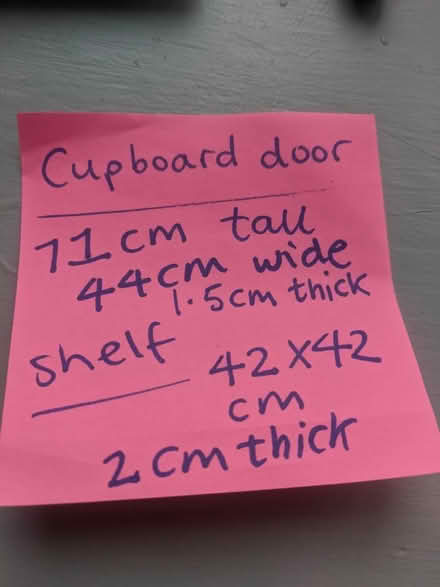 Cupboard door
71cm tall
44cm wide
1.5cm thick
shelf
42x42
cm
2cm thick